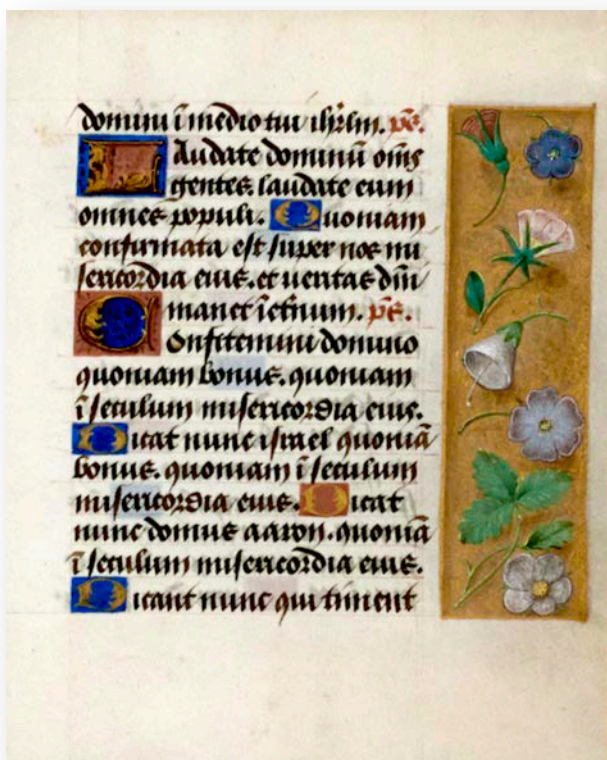 domini ī medio tui ihrl̄m. ps̄.
Laudate dominū om̄s
gentes laudate eum
omnes populi. Quoniam
confirmata est super nos mi
sericordia eius. et ueritas dn̄i
manet ī etn̄um. ps̄.
Confitemini domino
quoniam bonus. quoniam
ī seculum misericordia eius.
Dicat nunc israel quoniā
bonus. quoniam ī seculum
misericordia eius. Dicat
nunc domus aaron. quoniā
ī seculum misericordia eius.
Dicant nunc qui timent